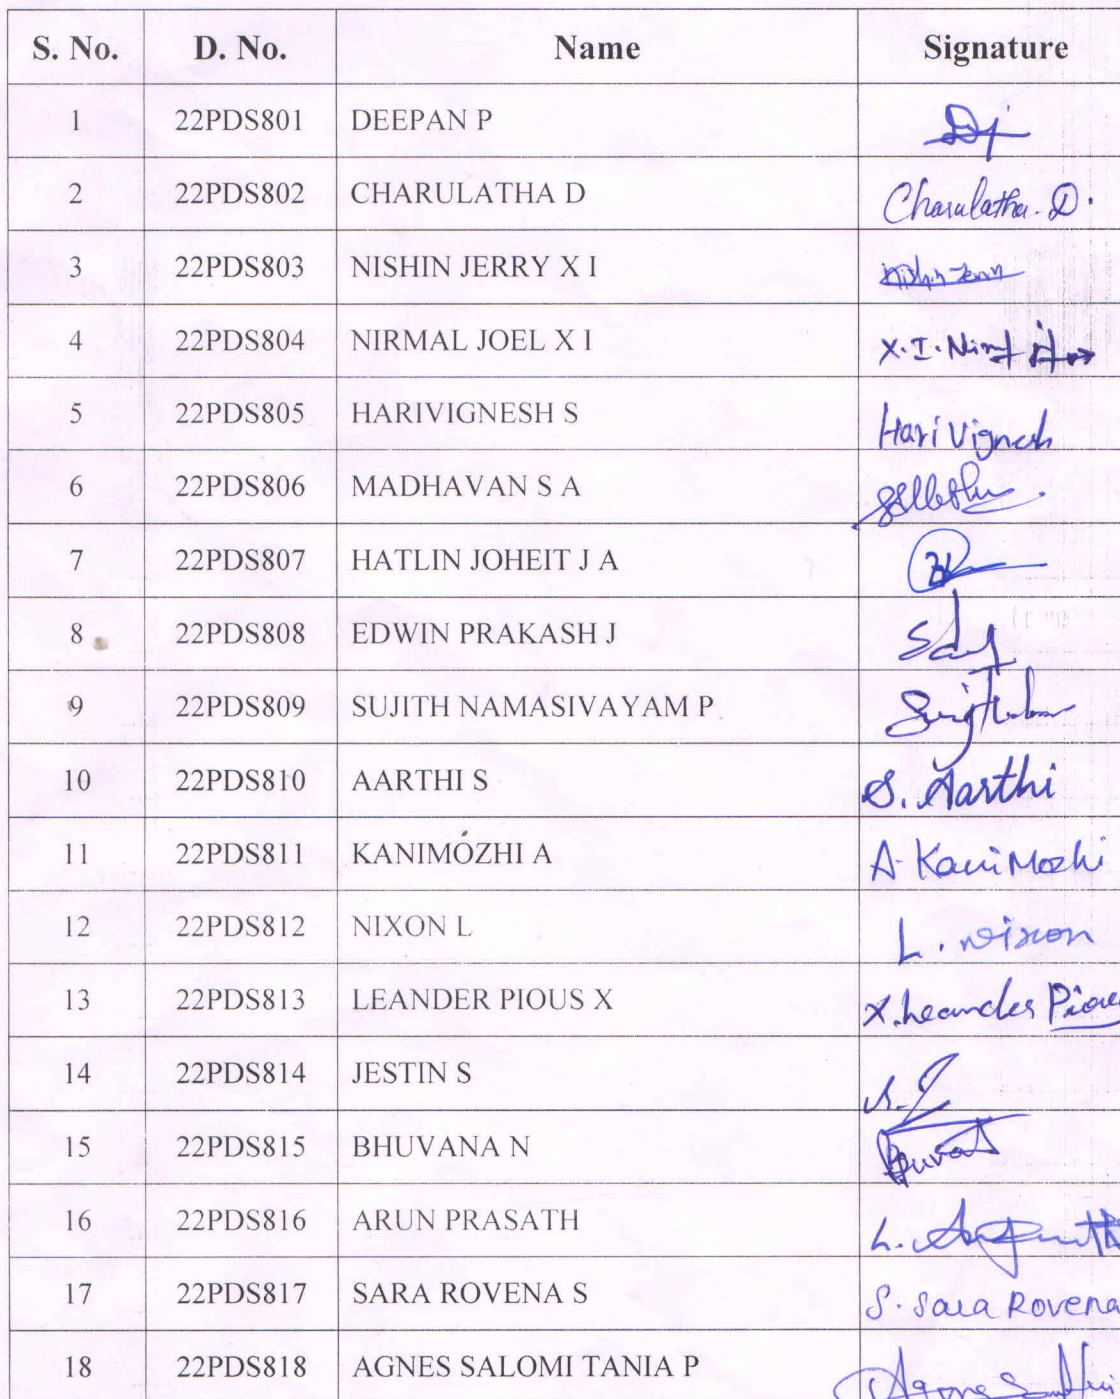 S. No. D. No. Name Signature
1 22PDS801 DEEPAN P
2 22PDS802 CHARULATHA D Charulatha. D.
3 22PDS803 NISHIN JERRY X I
4 22PDS804 NIRMAL JOEL X I X. I.
5 22PDS805 HARIVIGNESH S Hari Vignesh
6 22PDS806 MADHAVAN S A
7 22PDS807 HATLIN JOHEIT J A
8 22PDS808 EDWIN PRAKASH J
9 22PDS809 SUJITH NAMASIVAYAM P
10 22PDS810 AARTHI S S. Aarthi
11 22PDS811 KANIMOZHI A A. KaniMozhi
12 22PDS812 NIXON L L. Nixon
13 22PDS813 LEANDER PIOUS X X. Leander
14 22PDS814 JESTIN S
15 22PDS815 BHUVANA N
16 22PDS816 ARUN PRASATH
17 22PDS817 SARA ROVENA S S. Sara Rovena
18 22PDS818 AGNES SALOMI TANIA P